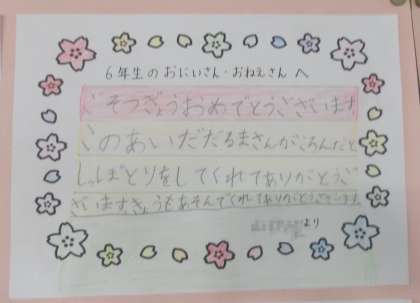 6年生のおにいさん・おねえさんへ
ごそつぎょうおめでとうございます
このあいだだるまさんがころんだと
しっぽとりをしてくれてありがとうご
ざいますきょうもあそんでくれてありがとうございます
より